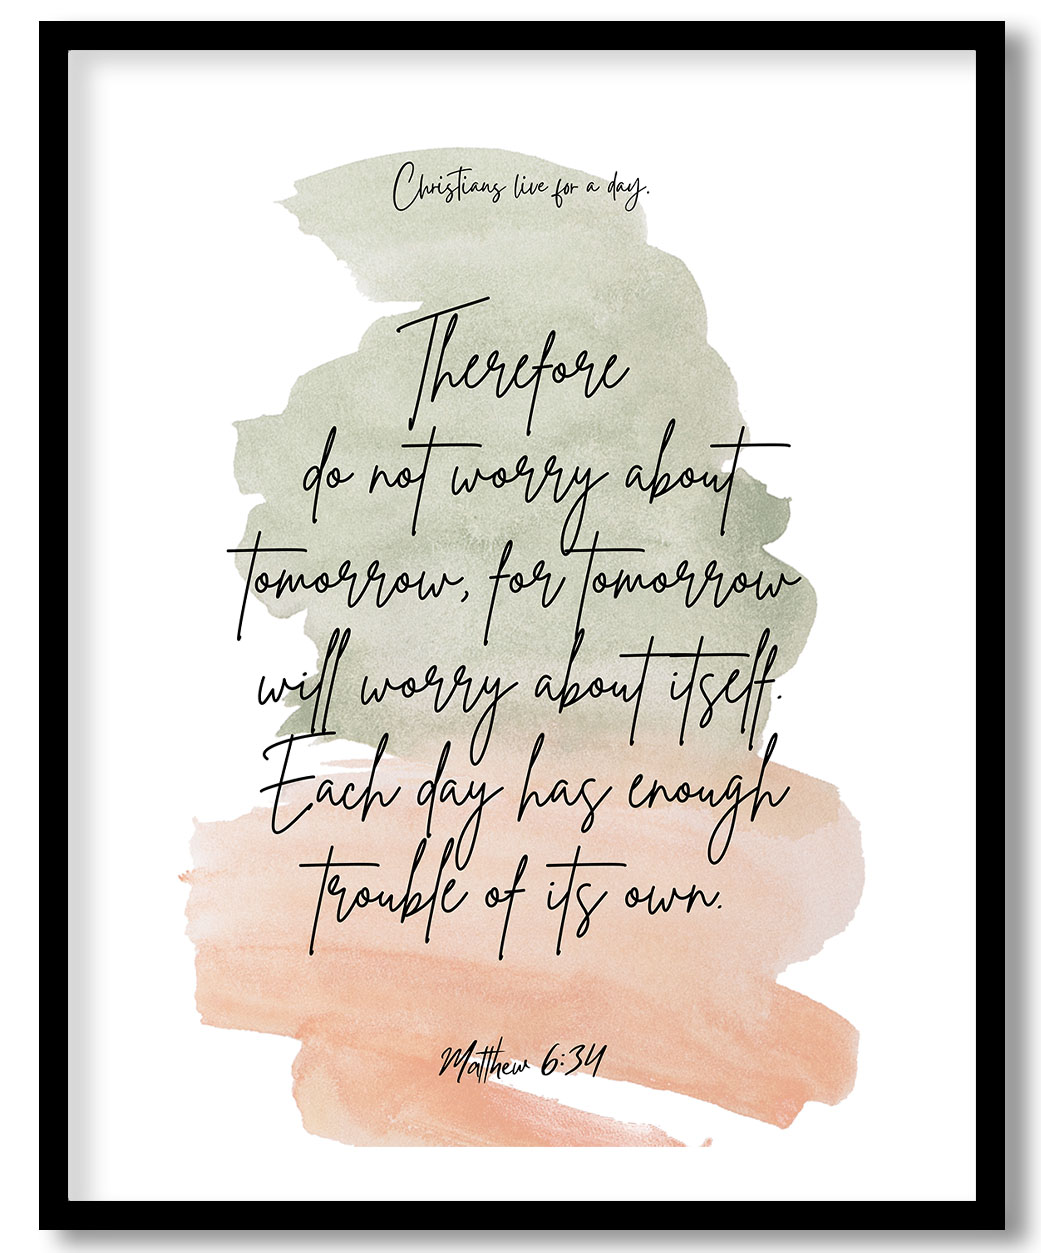 Christians live for a day.
Therefore
do not worry about
tomorrow, for tomorrow
will worry about itself.
Each day has enough
trouble of its own.
Matthew 6:34